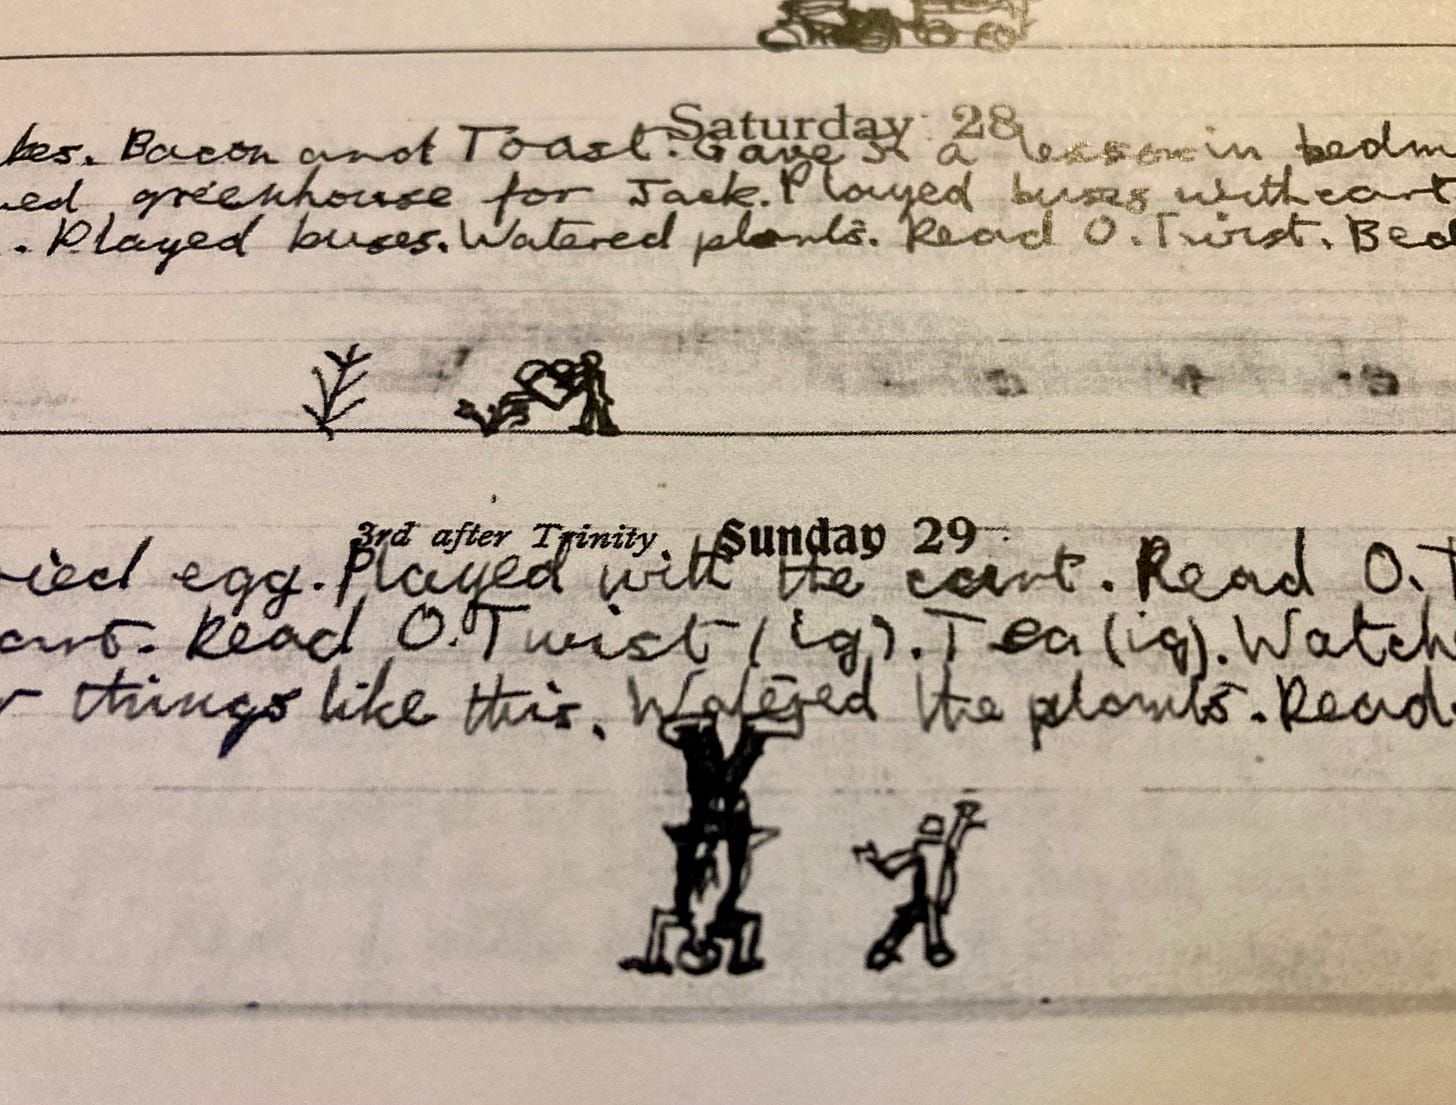 Saturday 28
kes. Bacon and Toast. Gave a lesson in bedm
ed greenhouse for Jack. Played buses with cart
. Played buses. Watered plants. Read O. Twist. Bed
3rd after Trinity. Sunday 29
ied egg. Played with the cart. Read O. T
art. Read O. Twist (ig). Tea (ig). Watch
things like this. Watered the plants. Read